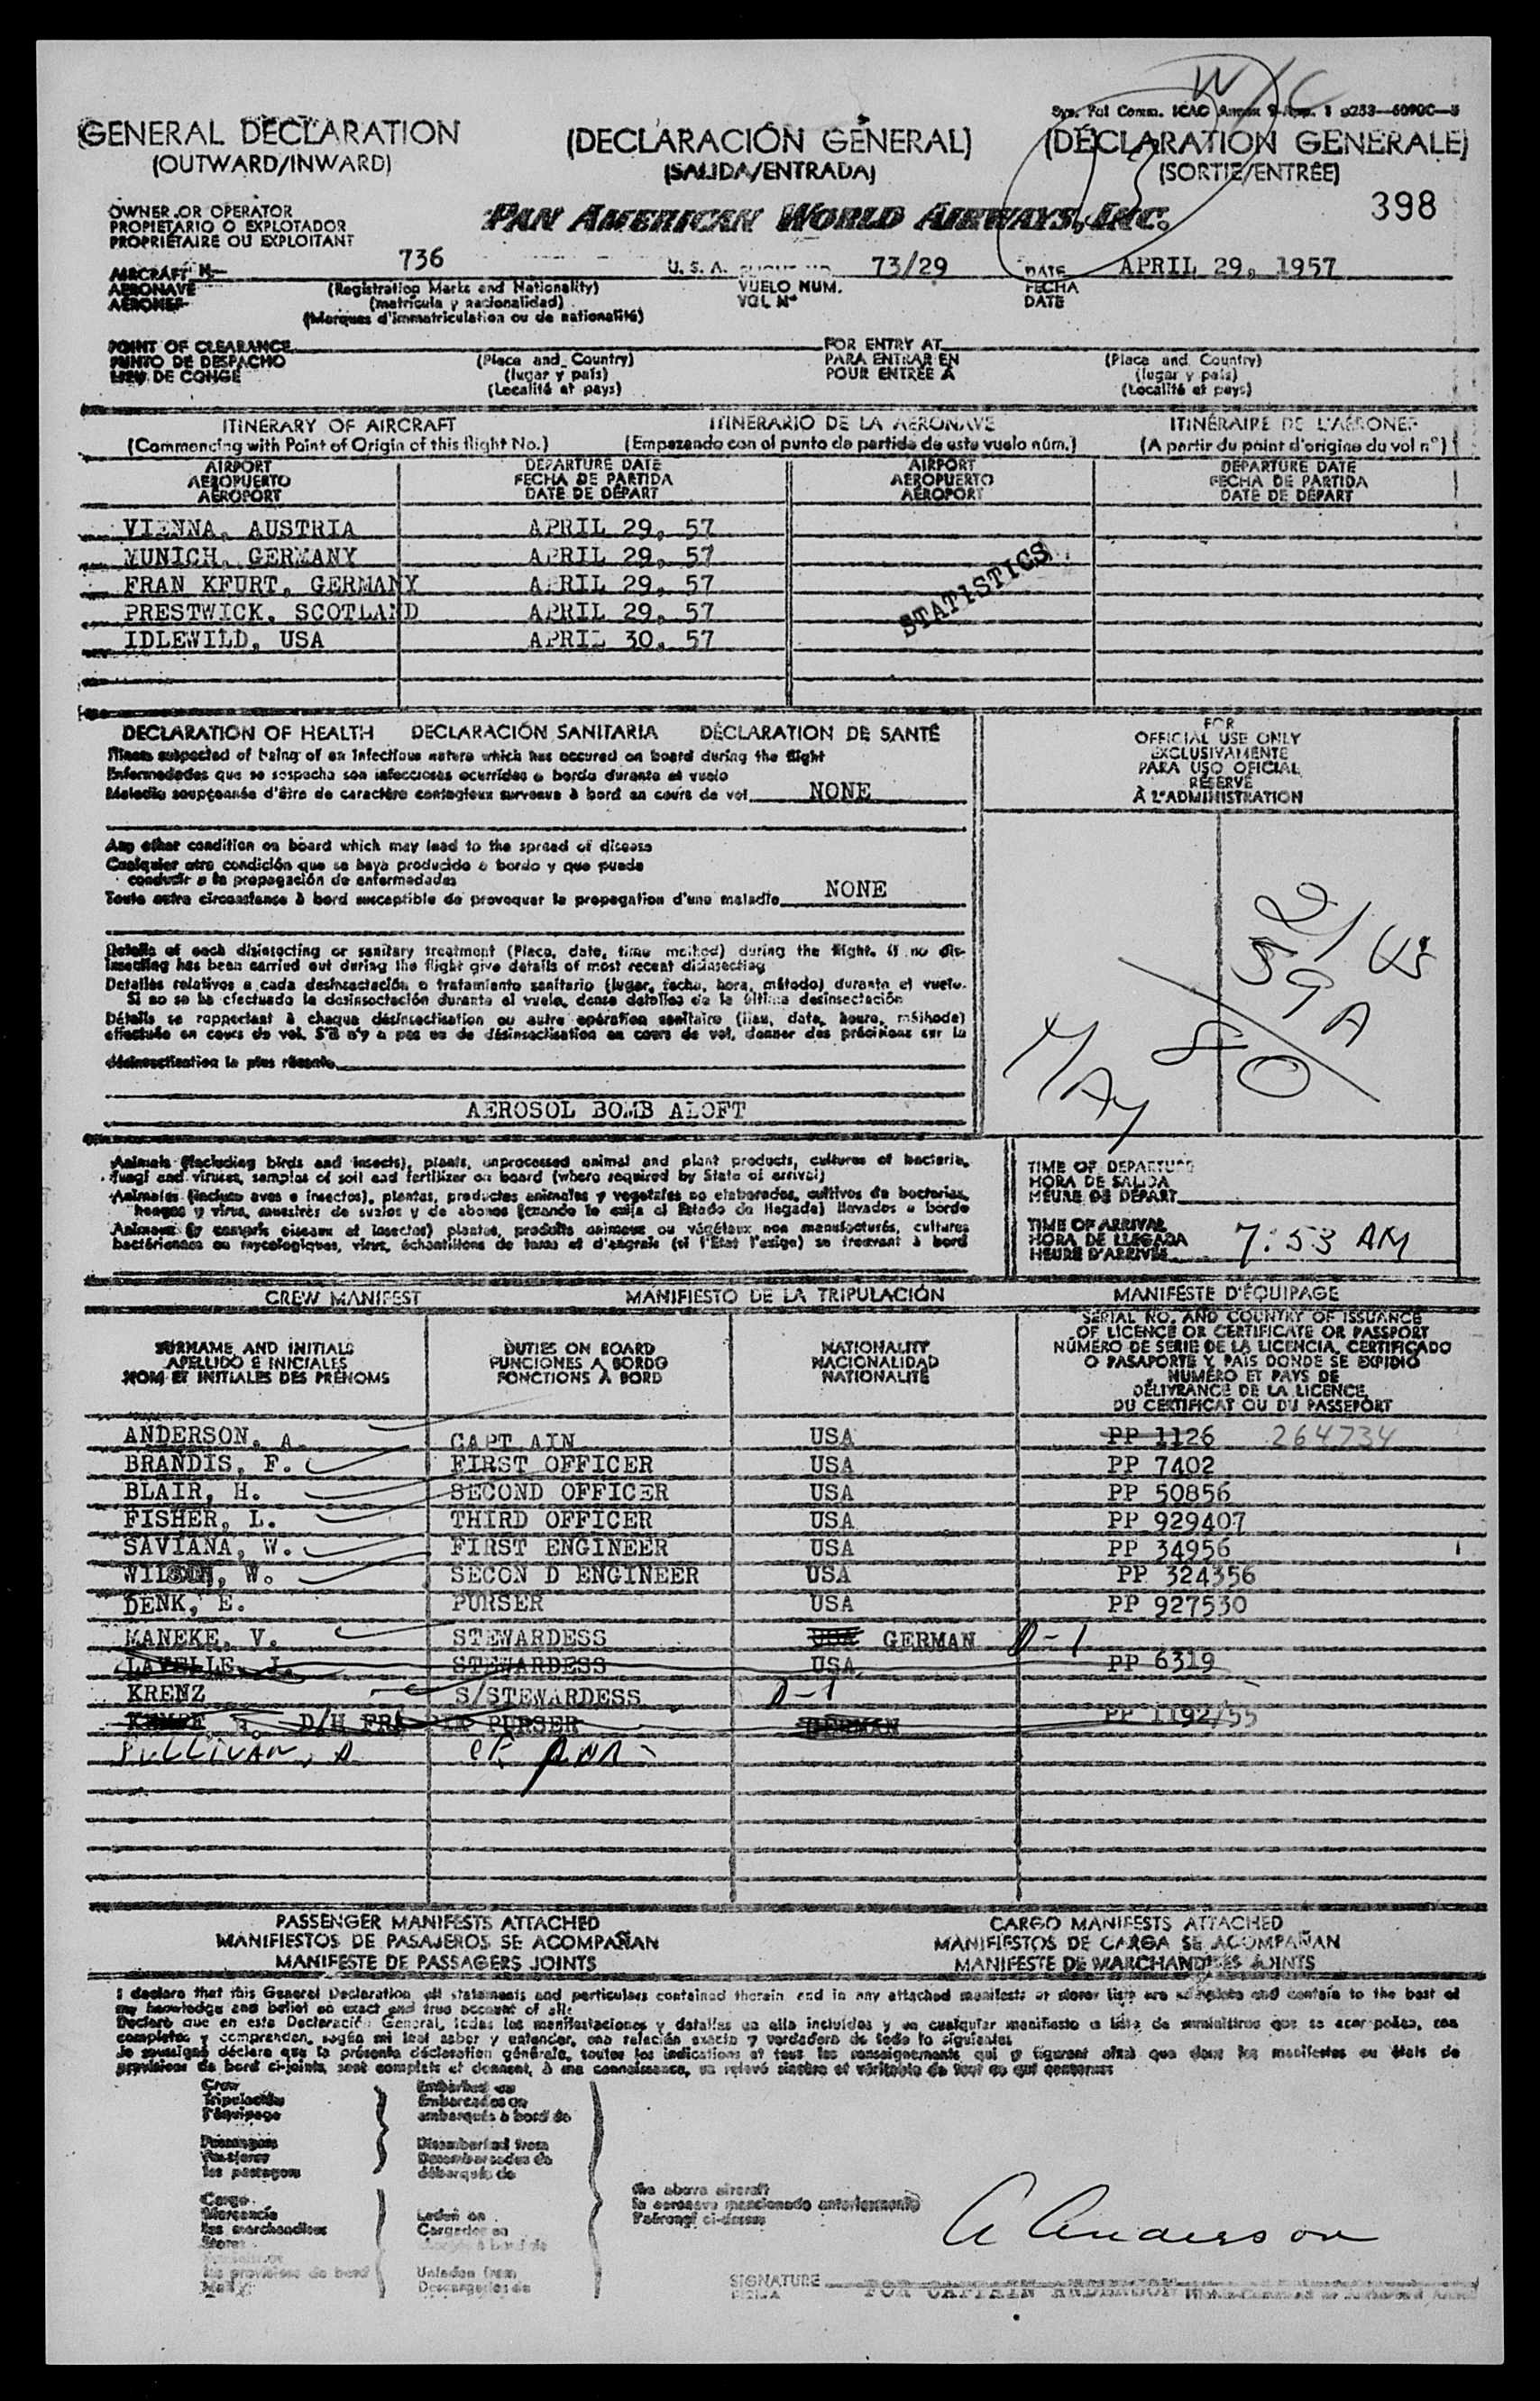 W/C
Sys. Pal Comm. ICAO Annex 9-App. 1 9253—6090C—5
GENERAL DECLARATION (DECLARACIÓN GENERAL) (DÉCLARATION GENERALE)
(OUTWARD/INWARD) (SALIDA/ENTRADA) (SORTIE/ENTRÉE)
OWNER OR OPERATOR
PROPIETARIO O EXPLOTADOR
PROPRIÉTAIRE OU EXPLOITANT
PAN AMERICAN WORLD AIRWAYS, INC. 398
AIRCRAFT N— 736 U. S. A. 73/29 DATE APRIL 29, 1957
AERONAVE (Registration Marks and Nationality) VUELO NUM. FECHA
AÉRONEF (matrícula y nacionalidad) VOL Nº DATE
(Marques d'immatriculation ou de nationalité)
POINT OF CLEARANCE FOR ENTRY AT
PUNTO DE DESPACHO (Place and Country) PARA ENTRAR EN (Place and Country)
LIEU DE CONGE (lugar y país) POUR ENTRÉE À (lugar y país)
(Localité et pays) (Localité et pays)
ITINERARY OF AIRCRAFT ITINERARIO DE LA AERONAVE ITINÉRAIRE DE L'AÉRONEF
(Commencing with Point of Origin of this flight No.) (Empezando con el punto de partida de este vuelo núm.) (A partir du point d'origine du vol nº)
AIRPORT DEPARTURE DATE AIRPORT DEPARTURE DATE
AEROPUERTO FECHA DE PARTIDA AEROPUERTO FECHA DE PARTIDA
AÉROPORT DATE DE DÉPART AÉROPORT DATE DE DÉPART
VIENNA, AUSTRIA APRIL 29, 57
MUNICH, GERMANY APRIL 29, 57
FRAN KFURT, GERMANY APRIL 29, 57
PRESTWICK, SCOTLAND APRIL 29, 57
IDLEWILD, USA APRIL 30, 57
STATISTICS
DECLARATION OF HEALTH DECLARACIÓN SANITARIA DÉCLARATION DE SANTÉ
Illness suspected of being of an infectious nature which has occured on board during the flight
Enfermedades que se sospecha son infecciosas ocurridas a bordo durante el vuelo
Maladie soupçonnée d'être de caractère contagieux survenue à bord au cours de vol NONE
Any other condition on board which may lead to the spread of disease
Cualquier otra condición que se haya producido a bordo y que pueda
conducir a la propagación de enfermedades
Toute autre circonstance à bord susceptible de provoquer la propagation d'une maladie NONE
Details of each disinsecting or sanitary treatment (Place, date, time method) during the flight. If no dis-
insecting has been carried out during the flight give details of most recent disinsecting
Detalles relativos a cada desinsectación o tratamiento sanitario (lugar, fecha, hora, método) durante el vuelo.
Si no se ha efectuado la desinsectación durante el vuelo, dense detalles de la última desinsectación
Détails se rapportant à chaque désinsectisation ou autre opération sanitaire (lieu, date, heure, méthode)
effectuée en cours de vol. S'il n'y a pas eu de désinsectisation en cours de vol, donner des précisions sur la
désinsectisation la plus récente
AEROSOL BOMB ALOFT
FOR
OFFICIAL USE ONLY
EXCLUSIVAMENTE
PARA USO OFICIAL
RÉSERVÉ
À L'ADMINISTRATION
21 US
59A
8/0
MAY
Animals (including birds and insects), plants, unprocessed animal and plant products, cultures of bacteria,
fungi and viruses, samples of soil and fertilizer on board (where required by State of arrival)
Animales (incluso aves e insectos), plantas, productos animales y vegetales no elaborados, cultivos de bacterias,
hongos y virus, muestras de suelos y de abonos (cuando lo exija el Estado de llegada) llevados a bordo
Animaux (y compris oiseaux et insectes) plantes, produits animaux ou végétaux non manufacturés, cultures
bactériennes ou mycologiques, virus, échantillons de terre et d'engrais (si l'État l'exige) se trouvant à bord
TIME OF DEPARTURE
HORA DE SALIDA
HEURE DE DÉPART
TIME OF ARRIVAL
HORA DE LLEGADA 7:53 AM
HEURE D'ARRIVÉE
CREW MANIFEST MANIFIESTO DE LA TRIPULACIÓN MANIFESTE D'ÉQUIPAGE
SURNAME AND INITIALS
APELLIDO E INICIALES
NOM ET INITIALES DES PRÉNOMS
DUTIES ON BOARD
FUNCIONES A BORDO
FONCTIONS À BORD
NATIONALITY
NACIONALIDAD
NATIONALITÉ
SERIAL NO. AND COUNTRY OF ISSUANCE
OF LICENCE OR CERTIFICATE OR PASSPORT
NÚMERO DE SERIE DE LA LICENCIA, CERTIFICADO
O PASAPORTE Y PAÍS DONDE SE EXPIDIÓ
NUMÉRO ET PAYS DE
DÉLIVRANCE DE LA LICENCE,
DU CERTIFICAT OU DU PASSEPORT
ANDERSON, A. CAPT AIN USA PP 1126 264734
BRANDIS, F. FIRST OFFICER USA PP 7402
BLAIR, H. SECOND OFFICER USA PP 50856
FISHER, L. THIRD OFFICER USA PP 929407
SAVIANA, W. FIRST ENGINEER USA PP 34956
WILSON, W. SECON D ENGINEER USA PP 324356
DENK, E. PURSER USA PP 927530
MANEKE, V. STEWARDESS USA GERMAN D-1
LAVELLE, J. STEWARDESS USA PP 6319
KRENZ S/STEWARDESS D-1
KEMPE D/H PURSER GERMAN PP 1192/55
SULLIVAN, A
PASSENGER MANIFESTS ATTACHED CARGO MANIFESTS ATTACHED
MANIFIESTOS DE PASAJEROS SE ACOMPAÑAN MANIFIESTOS DE CARGA SE ACOMPAÑAN
MANIFESTE DE PASSAGERS JOINTS MANIFESTE DE MARCHANDISES JOINTS
I declare that this General Declaration, all statements and particulars contained therein and in any attached manifests or stores lists are complete and contain to the best of
my knowledge and belief an exact and true account of all:
Declaro que en esta Declaración General, todas las manifestaciones y detalles en ella incluidos y en cualquier manifiesto o lista de suministros que se acompañan, son
completos y comprenden, según mi leal saber y entender, una relación exacta y verdadera de todo lo siguiente:
Je soussigné déclare que la présente déclaration générale, toutes les indications et tous les renseignements qui y figurent ainsi que dans les manifestes ou états de
provisions de bord ci-joints, sont complets et donnent, à ma connaissance, un relevé sincère et véritable de tout ce qui concerne:
Crew Embarked on
Tripulación Embarcados en
l'équipage embarqués à bord de
Passengers Disembarked from
Pasajeros Desembarcados de
les passagers débarqués de
Cargo
Mercancía Laden on
les marchandises Cargados en
Stores
les provisions de bord Unladen from
Descargados de
the above aircraft
la aeronave mencionada anteriormente
l'aéronef ci-dessus
A Anderson
SIGNATURE FOR CAPTAIN ANDERSON
FIRMA